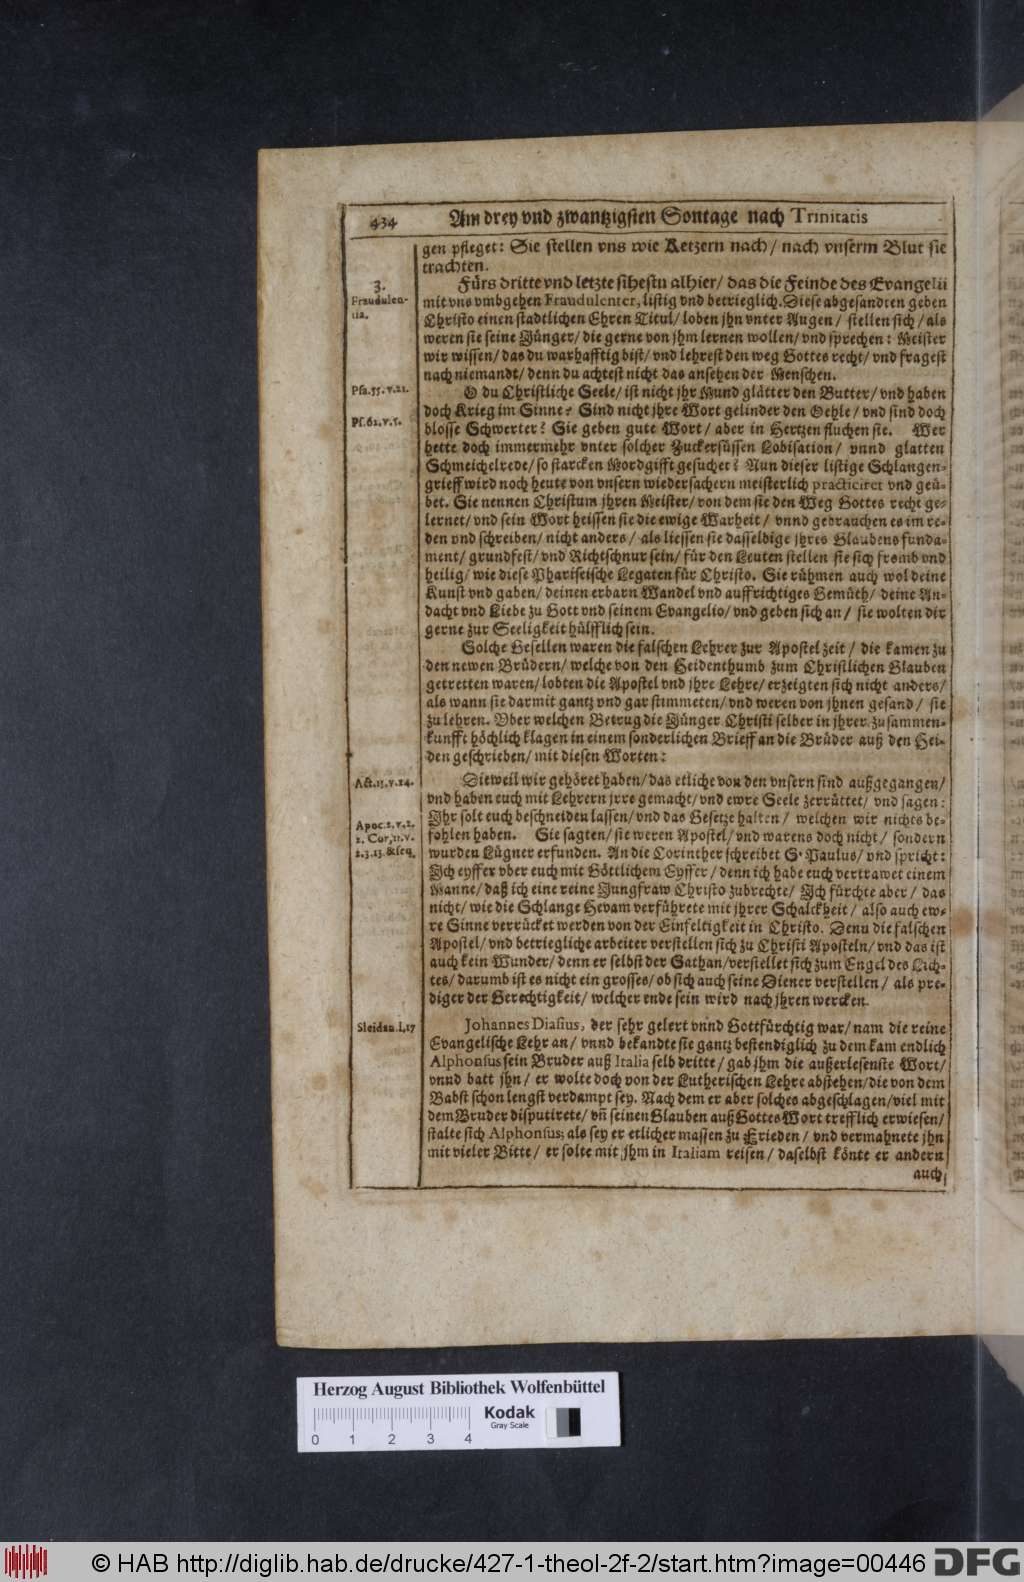 434 Am drey vnd zwantzigsten Sontage nach Trinitatis
gen pfleget: Sie stellen vns wie Ketzern nach/ nach vnserm Blut sie
trachten.
3.
Fraudulen-
tia.
Fürs dritte vnd letzte sihestu alhier/ das die Feinde des Evangelii
mit vns vmbgehen Fraudulenter, listig vnd betrieglich. Diese abgesandten geben
Christo einen stadtlichen Ehren Titul/ loben jhn vnter Augen/ stellen sich/ als
weren sie seine Jünger/ die gerne von jhm lernen wollen/ vnd sprechen: Meister
wir wissen/ das du warhafftig bist/ vnd lehrest den weg Gottes recht/ vnd fragest
nach niemandt/ denn du achtest nicht das ansehen der Menschen.
Psa. 55. v. 21.
O du Christliche Seele/ ist nicht jhr Mund glätter den Butter/ vnd haben
doch Krieg im Sinne? Sind nicht jhre Wort gelinder den Oehle/ vnd sind doch
Ps. 62. v. 5.
blosse Schwerter? Sie geben gute Wort/ aber in Hertzen fluchen sie. Wer
hette doch immermehr vnter solcher Zuckersüssen Lobisation/ vnnd glatten
Schmeichelrede/ so starcken Mordgifft gesuchet? Nun dieser listige Schlangen-
grieff wird noch heute von vnsern wiedersachern meisterlich practiciret vnd geü-
bet. Sie nennen Christum jhren Meister/ von dem sie den Weg Gottes recht ge-
lernet/ vnd sein Wort heissen sie die ewige Warheit/ vnnd gebrauchen es im re-
den vnd schreiben/ nicht anders/ als liessen sie dasselbige jhres Glaubens funda-
ment/ grundfest/ vnd Richtschnur sein/ für den Leuten stellen sie sich fromb vnd
heilig/ wie diese Phariseische Legaten für Christo. Sie rühmen auch wol deine
Kunst vnd gaben/ deinen erbarn Wandel vnd auffrichtiges Gemüth/ deine An-
dacht vnd Liebe zu Gott vnd seinem Evangelio/ vnd geben sich an/ sie wolten dir
gerne zur Seeligkeit hülfflich sein.
Solche Gesellen waren die falschen Lehrer zur Apostel zeit/ die kamen zu
den newen Brüdern/ welche von den Heidenthumb zum Christlichen Glauben
getretten waren/ lobten die Apostel vnd jhre Lehre/ erzeigten sich nicht anders/
als wann sie darmit gantz vnd gar stimmeten/ vnd weren von jhnen gesand/ sie
zu lehren. Vber welchen Betrug die Jünger Christi selber in jhrer zusammen-
kunfft höchlich klagen in einem sonderlichen Brieff an die Brüder auß den Hei-
den geschrieben/ mit diesen Worten:
Act. 15. v. 24.
Dieweil wir gehöret haben/ das etliche von den vnsern sind außgegangen/
vnd haben euch mit Lehrern jrre gemacht/ vnd ewre Seele zerrüttet/ vnd sagen:
Jhr solt euch beschneiden lassen/ vnd das Gesetze halten/ welchen wir nichts be-
Apoc. 2. v. 2.
2. Cor. 11. v.
2. 3. 13. & seq.
fohlen haben. Sie sagten/ sie weren Apostel/ vnd warens doch nicht/ sondern
wurden Lügner erfunden. An die Corinther schreibet S. Paulus/ vnd spricht:
Jch eyffer vber euch mit Göttlichem Eyffer/ denn ich habe euch vertrawet einem
Manne/ daß ich eine reine Jungfraw Christo zubrechte/ Jch fürchte aber/ das
nicht/ wie die Schlange Hevam verführete mit jhrer Schalckheit/ also auch ew-
re Sinne verrücket werden von der Einfeltigkeit in Christo. Denn die falschen
Apostel/ vnd betriegliche arbeiter verstellen sich zu Christi Aposteln/ vnd das ist
auch kein Wunder/ denn er selbst der Sathan/ verstellet sich zum Engel des Lich-
tes/ darumb ist es nicht ein grosses/ ob sich auch seine Diener verstellen/ als pre-
diger der Gerechtigkeit/ welcher ende sein wird nach jhren wercken.
Sleidan. l. 17
Johannes Diasius, der sehr gelert vnnd Gottfürchtig war/ nam die reine
Evangelische Lehr an/ vnnd bekandte sie gantz bestendiglich zu dem kam endlich
Alphonsus sein Bruder auß Italia selb dritte/ gab jhm die außerlesenste Wort/
vnnd batt jhn/ er wolte doch von der Lutherischen Lehre abstehen/ die von dem
Babst schon lengst verdampt sey. Nach dem er aber solches abgeschlagen/ viel mit
dem Bruder disputirete/ vñ seinen Glauben auß Gottes Wort trefflich erwiesen/
stalte sich Alphonsus; als sey er etlicher massen zu Frieden/ vnd vermahnete jhn
mit vieler Bitte/ er solte mit jhm in Italiam reisen/ daselbst könte er andern
auch
Herzog August Bibliothek Wolfenbüttel
Kodak
Gray Scale
0 1 2 3 4
© HAB http://diglib.hab.de/drucke/427-1-theol-2f-2/start.htm?image=00446 DFG